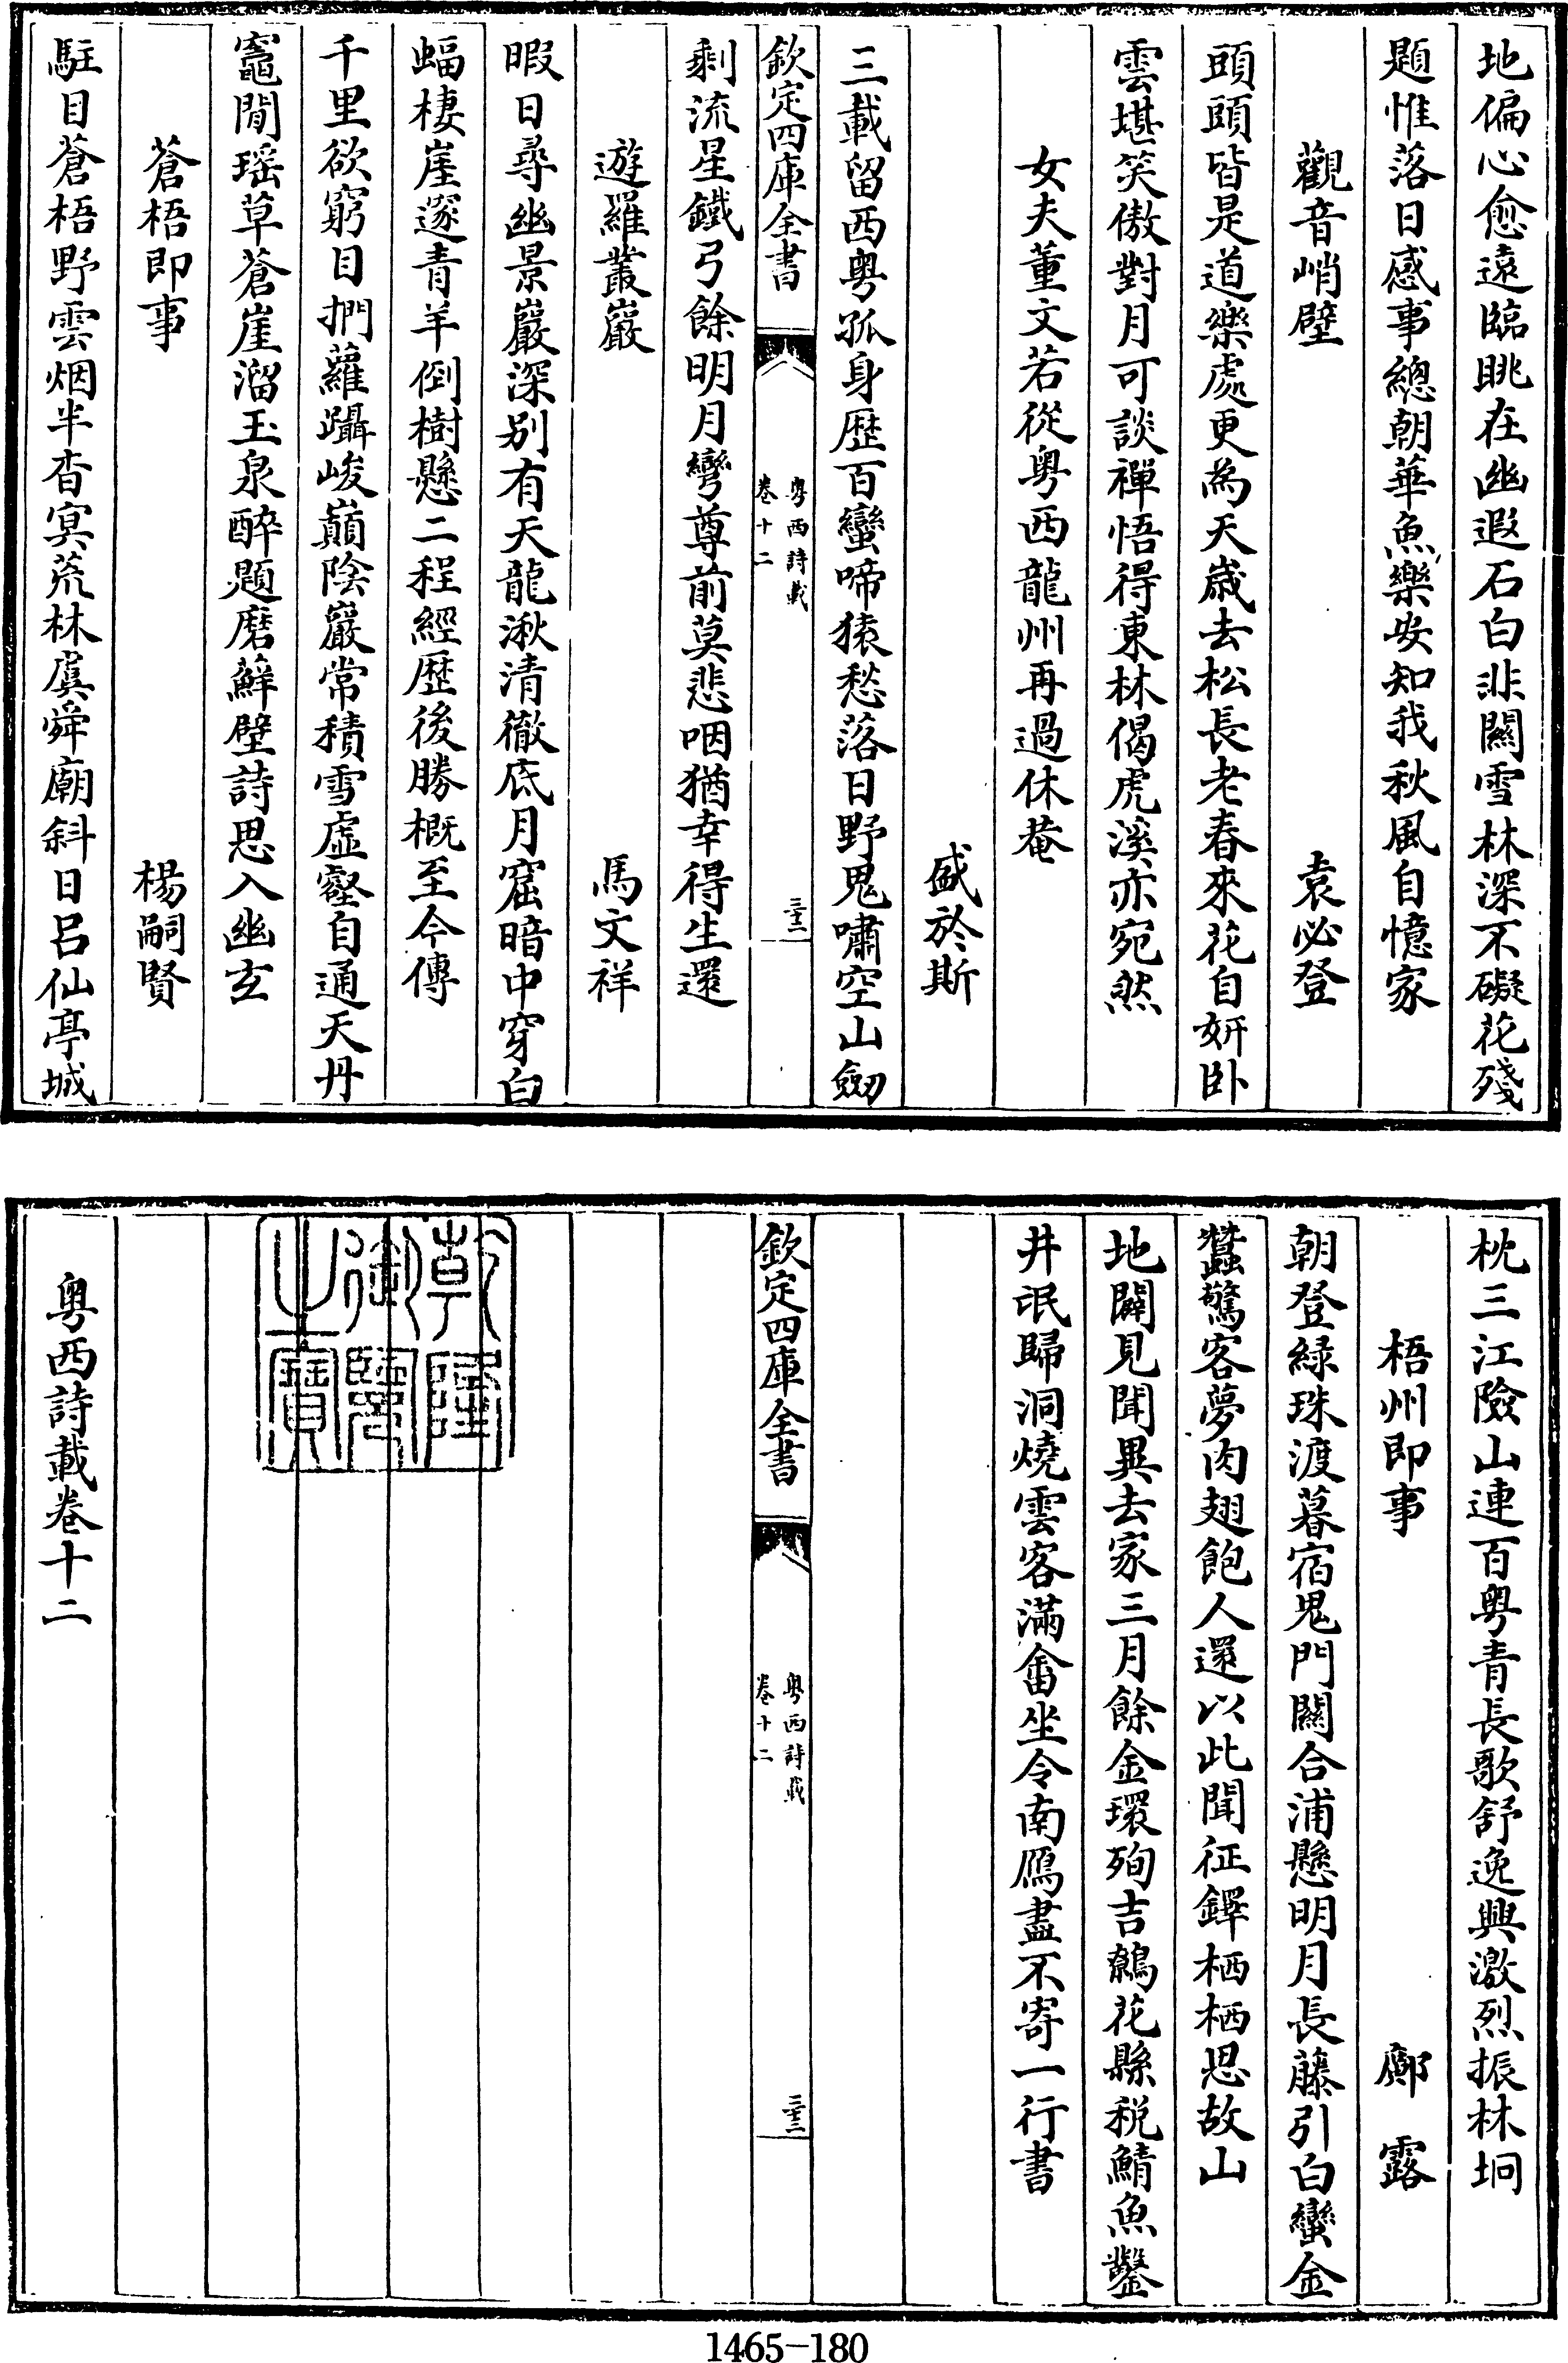 地偏心愈遠臨眺在幽遐石白非關雪林深不礙花殘
題惟落日感事總朝華魚樂安知我秋風自憶家
觀音峭壁 袁必登
頭頭皆是道樂處更為天歲去松長老春來花自妍卧
雲堪笑傲對月可談禪悟得東林偈虎溪亦宛然
女夫董文若從粤西龍州再過休菴
盛於斯
三載留西粤孤身歷百蠻啼猿愁落日野鬼嘯空山劒
欽定四庫全書
粤西詩載
卷十二
三十二
剩流星鐵弓餘明月彎尊前莫悲咽猶幸得生還
遊羅叢巖 馬文祥
暇日尋幽景巖深别有天龍湫清徹底月窟暗中穿白
蝠棲崖邃青羊倒樹懸二程經歷後勝概至今傳
千里欲窮目捫蘿躡峻巔陰巖常積雪虛壑自通天丹
竈閒瑶草蒼崖溜玉泉醉題磨蘚壁詩思入幽玄
蒼梧即事 楊嗣賢
駐目蒼梧野雲烟半杳冥荒林虞舜廟斜日吕仙亭城
枕三江險山連百粤青長歌舒逸興激烈振林坰
梧州即事 鄺露
朝登緑珠渡暮宿鬼門關合浦懸明月長藤引白蠻金
蠶驚客夢肉翅飽人還以此聞征鐸栖栖思故山
地闢見聞異去家三月餘金環殉吉鷯花縣税鯖魚鑿
井氓歸洞燒雲客滿畬坐令南鴈盡不寄一行書
欽定四庫全書
粤西詩載
卷十二
三十三
乾隆御覽之寶
粤西詩載卷十二
1465-180